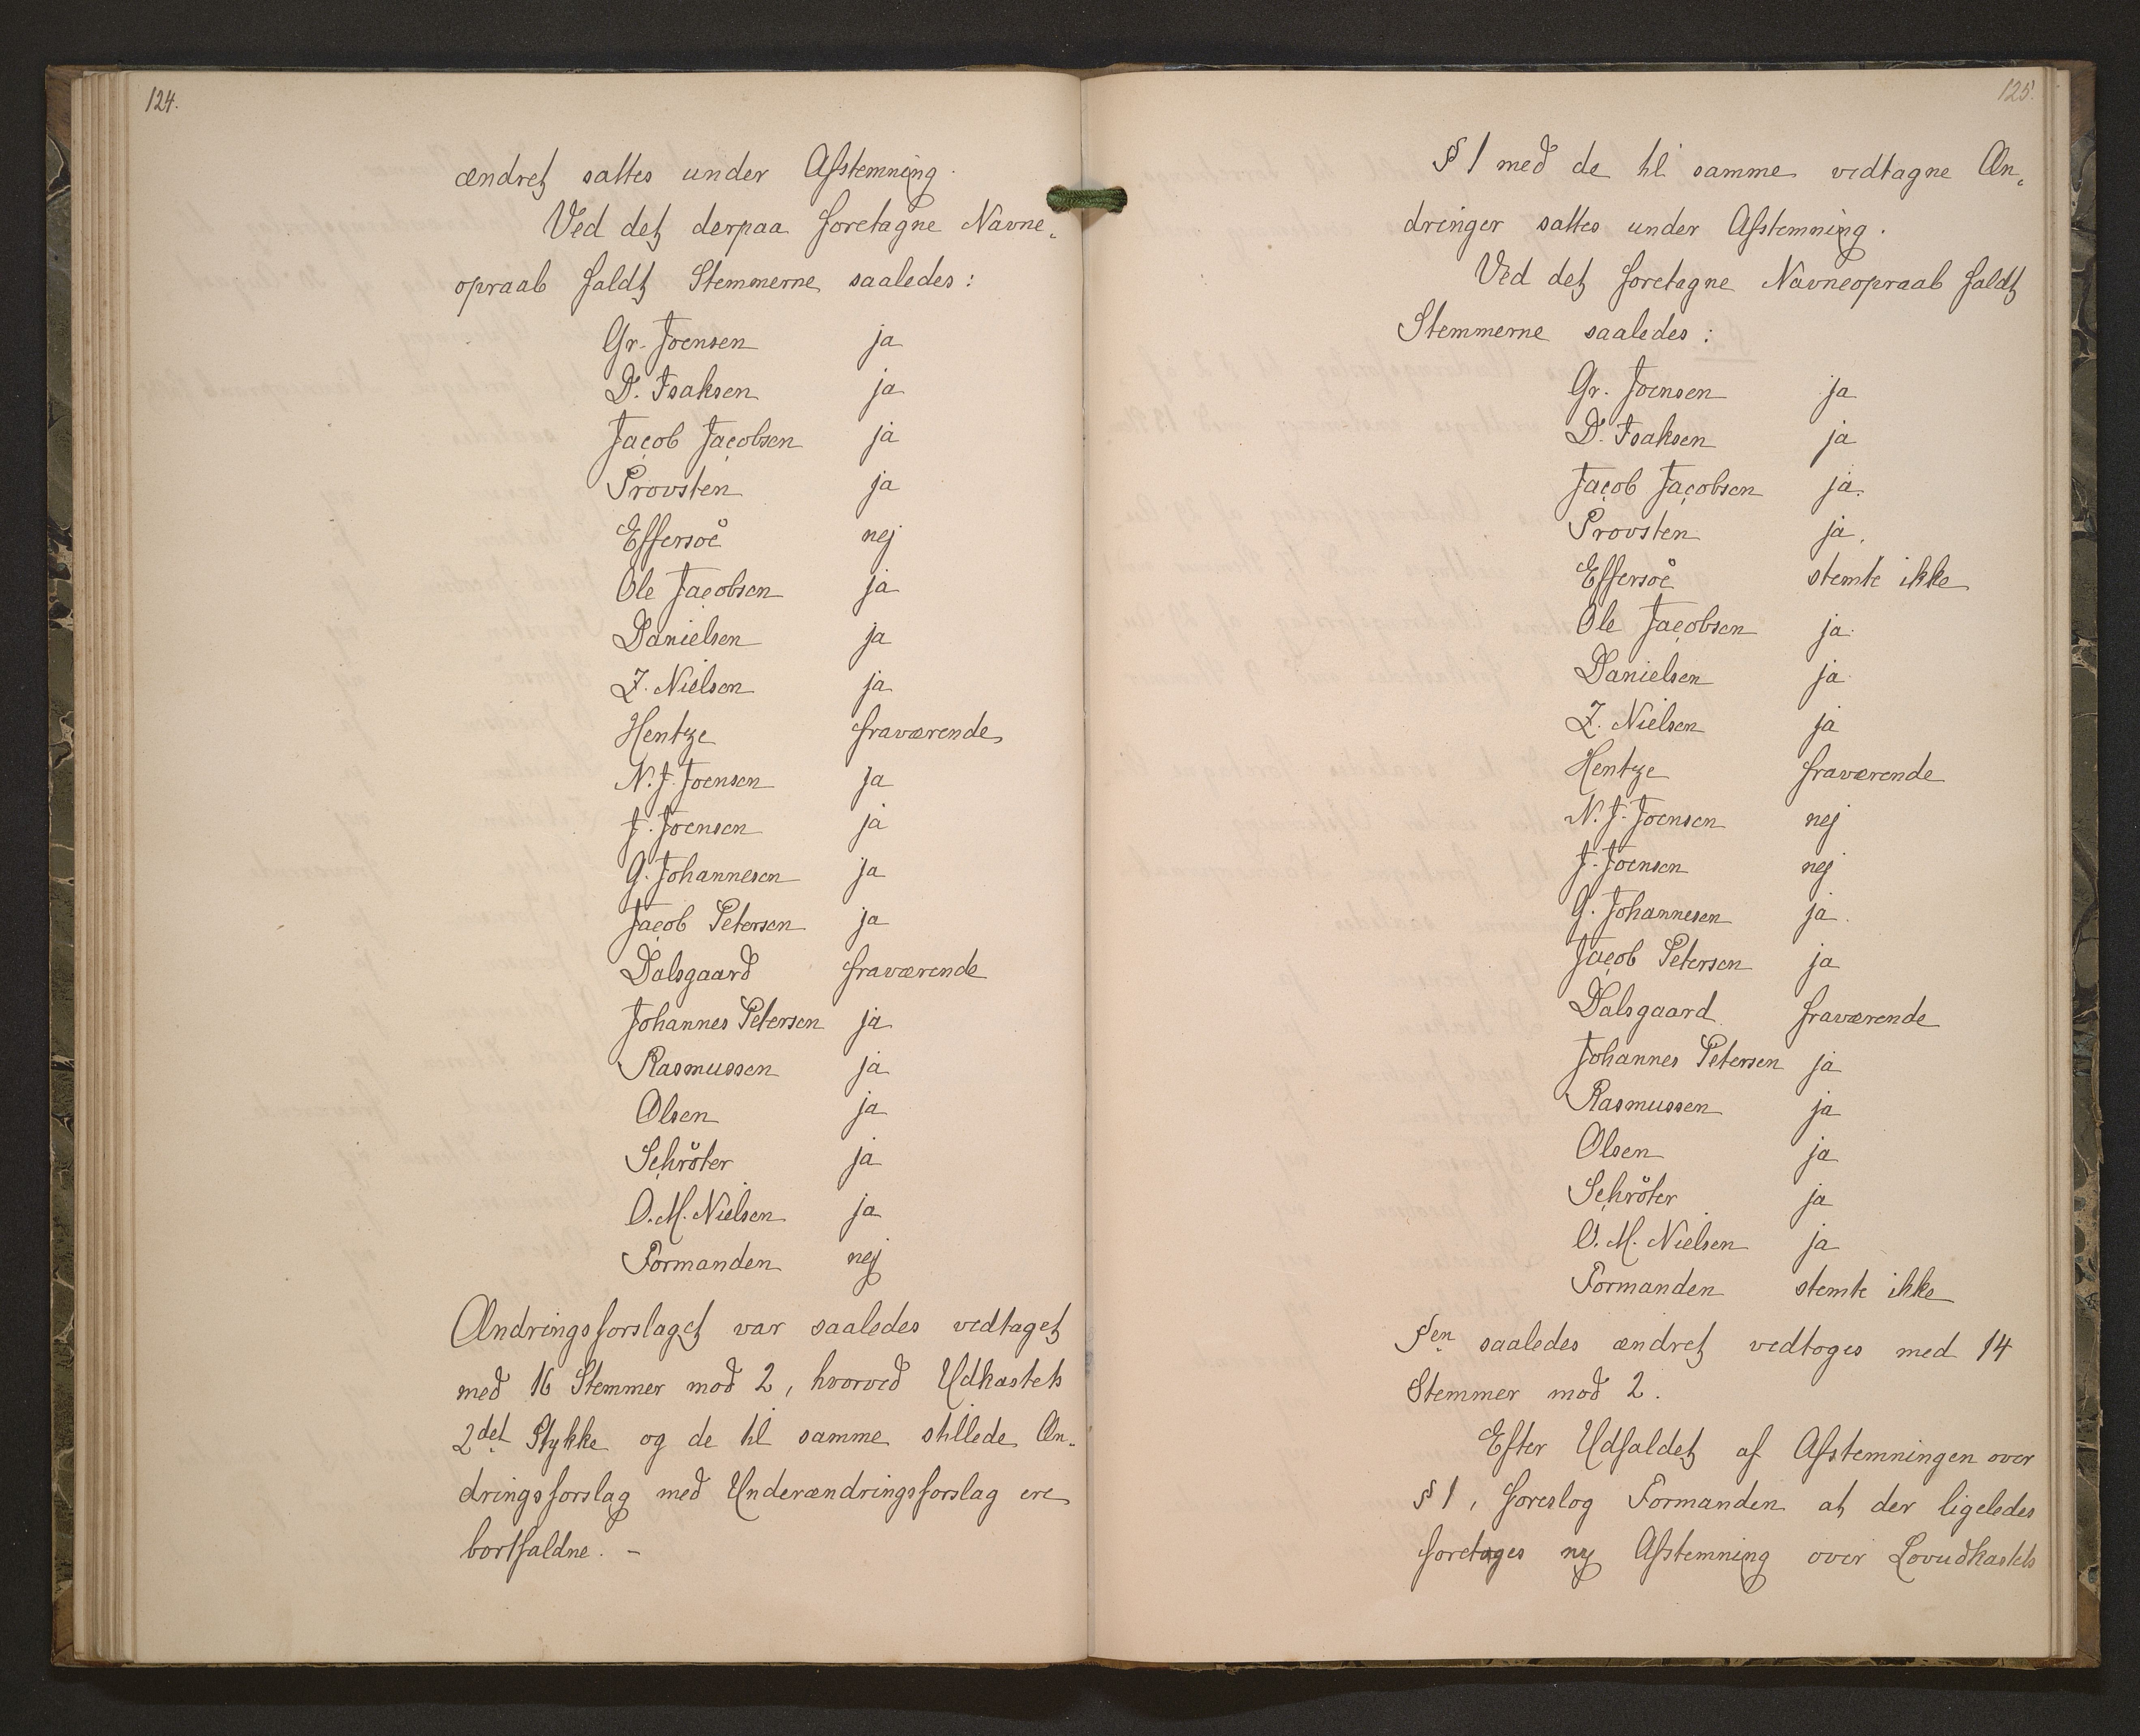 124.
ændret sattes under Afstemning.
Ved det derpaa foretagne Navne-
opraab faldt Stemmerne saaledes:
Gr. Joensen ja
D. Isaksen ja
Jacob Jacobsen ja
Provsten ja
Effersøe nej
Ole Jacobsen ja
Danielsen ja
Z. Nielsen ja
Hentze fraværende
N. J. Joensen ja
J. Joensen ja
G. Johannesen ja
Jacob Petersen ja
Dalsgaard fraværende
Johannes Petersen ja
Rasmussen ja
Olsen ja
Schrøter ja
O. M. Nielsen ja
Formanden nej
Ændringsforslaget var saaledes vedtaget
med 16 Stemmer mod 2, hvorved Udkastets
2det Stykke og de til samme stillede Æn-
dringsforslag med Underændringsforslag ere
bortfaldne. -
125.
§ 1 med de til samme vedtagne Æn-
dringer sattes under Afstemning.
Ved det foretagne Navneopraab faldt
Stemmerne saaledes:
Gr. Joensen ja
D. Isaksen ja
Jacob Jacobsen ja.
Provsten ja.
Effersøe stemte ikke
Ole Jacobsen ja.
Danielsen ja
Z. Nielsen ja
Hentze fraværende
N. J. Joensen nej
J. Joensen nej
G. Johannesen ja.
Jacob Petersen ja
Dalsgaard fraværende
Johannes Petersen ja
Rasmussen ja
Olsen ja
Schrøter ja
O. M. Nielsen ja
Formanden stemte ikke
§en saaledes ændret vedtoges med 14
Stemmer mod 2.
Efter Udfaldet af Afstemningen over
§ 1, foreslog Formanden at der ligeledes
foretoges ny Afstemning over Lovudkastets